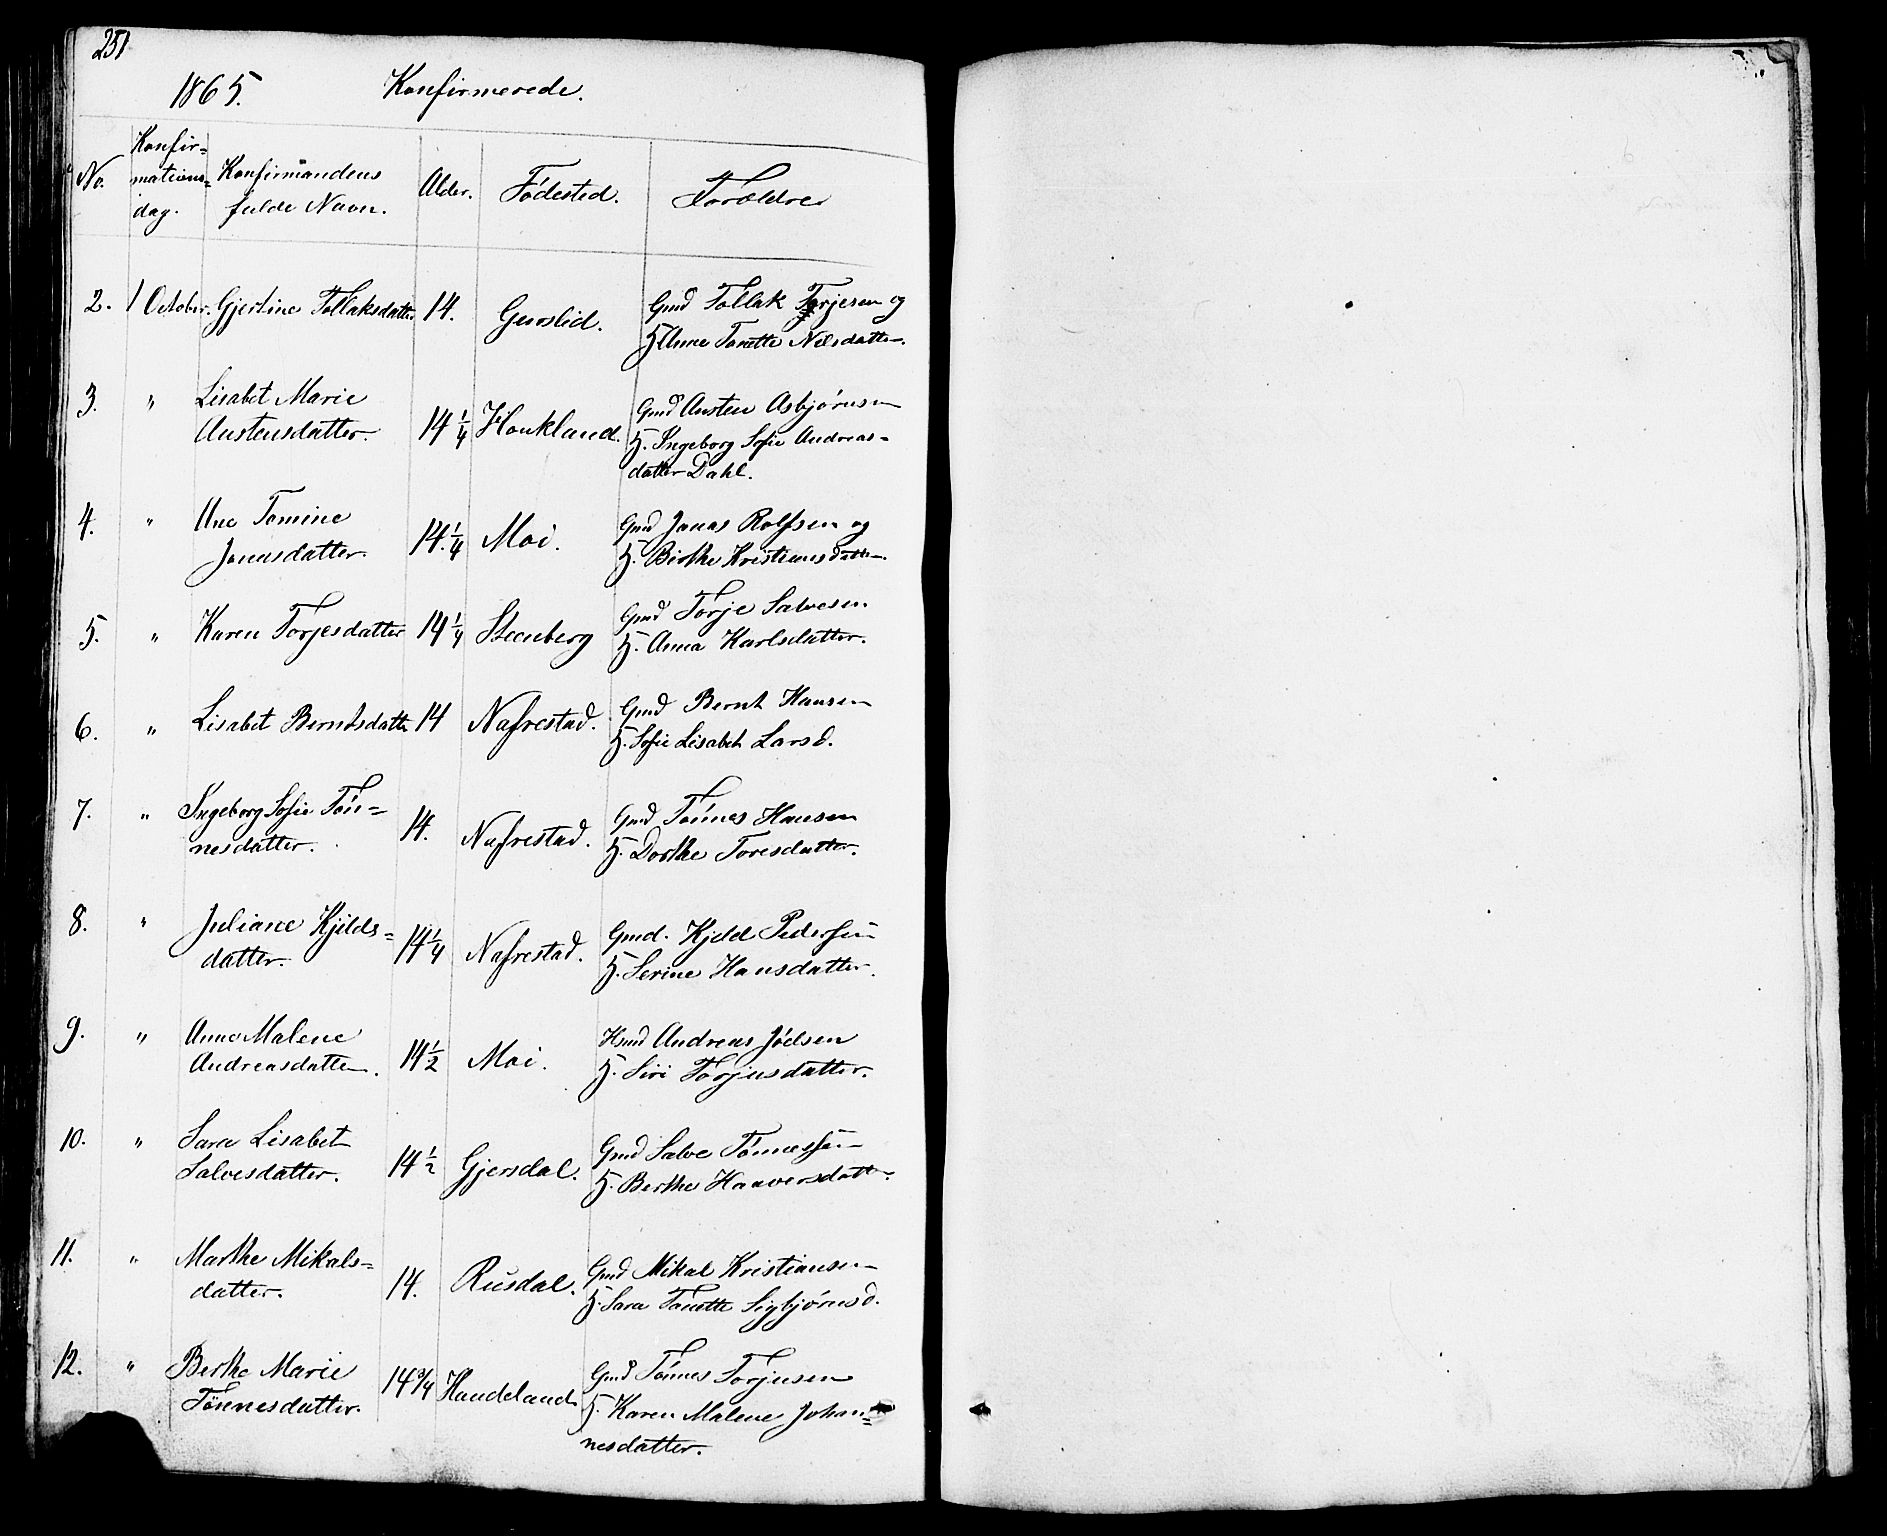 251
1865. Konfirmerede.
No. Konfir=mations=dag. Konfirmandens fulde Navn. Alder. Fødested. Forældre
2. 1 October. Gjertine Tollaksdatter 14. Gurslid. Gmd Tollak Torjesen og
H Anne Tonette Nilsdatter.
3. " Lisabet Marie Austensdatter. 14 1/4 Houkland. Gmd Austen Asbjørnsen
H. Ingeborg Sofie Andreas=
datter Dahl.
4. " Ane Tomine Jonasdatter. 14. 1/4 Moi. Gmd Jonas Rolfsen og
H. Birthe Kristiansdatter.
5. " Karen Torjesdatter 14 1/4 Steenberg Gmd Torje Salvesen
H. Anna Karlsdatter.
6. " Lisabet Berntsdatte 14 Nafrestad. Gmd Bernt Hansen
H. Sofie Lisabet Larsd.
7. " Ingeborg Sofie Tön=nesdatter. 14. Nafrestad. Gmd Tönnes Hansen
H. Dorthe Toresdatter.
8. " Juliane Kjilds=datter. 14 1/4 Nafrestad. Gmd. Kjeld Pedersen
H. Serine Hansdatter.
9. " Anne Malene Andreasdatter. 14 1/2 Moi. Hsmd Andreas Jödsen
H. Siri Torjusdatter.
10. " Sara Lisabet Salvesdatter. 14 1/2 Gjersdal. Gmd Salve Tönnessen
H. Berthe Haaversdatt.
11. " Marthe Mikals=datter. 14. Rusdal. Gmd Mikal Kristiansen
H. Sara Tonette Sigbjørnsd.
12. " Berthe Marie Tönnesdatter. 14 3/4 Haudeland. Gmd Tönnes Torjusen
H. Karen Malene Johan=
nesdatter.